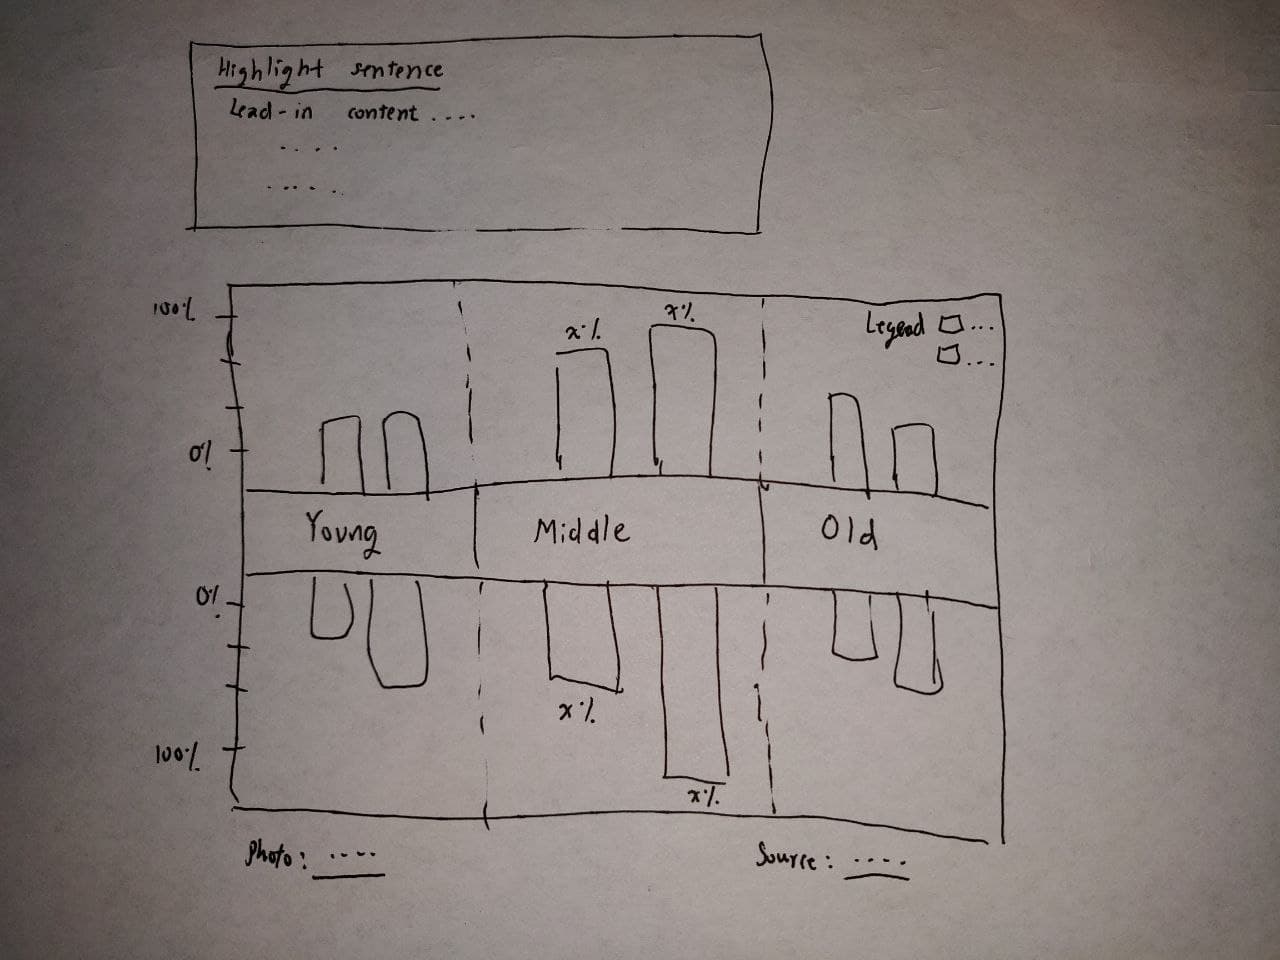 Highlight sentence
Lead-in content ....
....
.....
100%
x%
x%
Legend ...
...
0%
Young
Middle
Old
0%
x%
100%
x%
Photo: ....
Source: ....